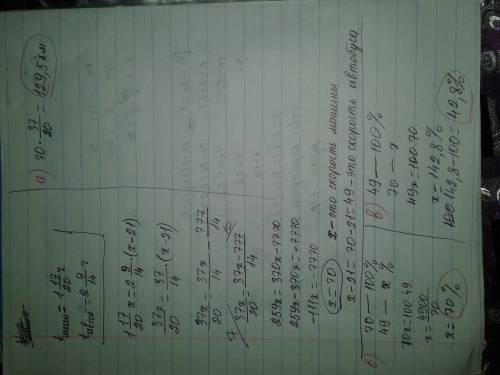 t маш = 1 17/20 ч
t автоб = 2 9/14 ч
1 17/20 x = 2 9/14 · (x-21)
37x/20 = 37/14 · (x-21)
37x/20 = 37x/14 - 777/14
7 37x/20 = 37x-777/14 10
259x = 370x-7770
259x-370x = -7770
-111x = -7770
x=70 x - это скорость машины.
x-21=70-21=49 - это скорость автобуса
а) 70 · 37/20 = 129,5 км
б) 70 — 100%
49 — x %
70x = 100·49
x = 4900/70
x = 70%
в) 49 — 100%
70 — x
49x = 100·70
x = 142,8%
142,8-100 = 42,8%